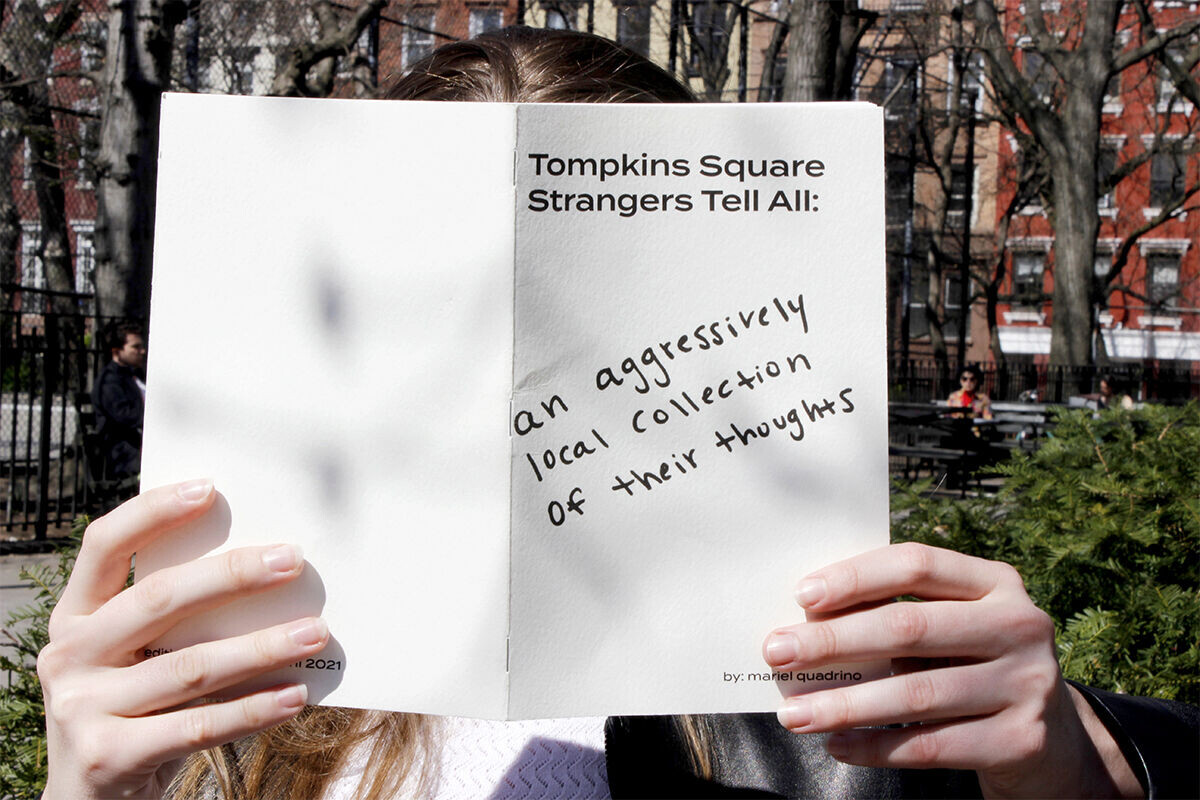 Tompkins Square
Strangers Tell All:
an aggressively
local collection
of their thoughts
2021
by: mariel quadrino